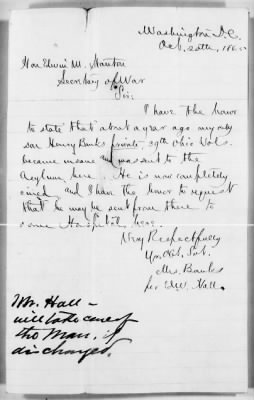 Washington D.C.
Oct. 20th, 1865
Hon Edwin M. Stanton
Secretary of War
Sir:
I have the honor
to state that about a year ago my only
son Henry Banks private, 39th Ohio Vols.
became insane and was sent to the
Asylum here. He is now completely
cured and I have the honor to request
that he may be sent from there to
some Hospital here.
Very Respectfully
Yr. Obt. Svt.
Mrs. Banks
per Edw. Hall.
Mr. Hall –
will take care of
the man, if
discharged.